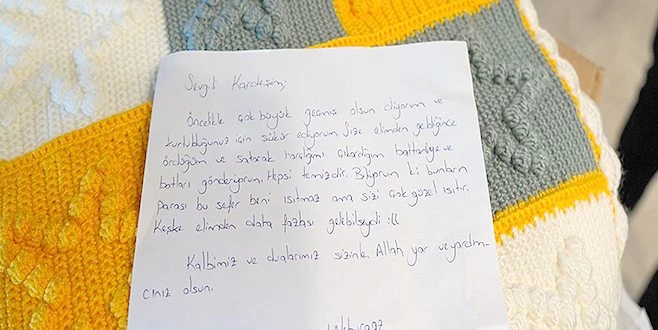 Sevgili Kardeşim;
Öncelikle çok büyük geçmiş olsun diyorum ve
kurtulduğunuz için şükür ediyorum. Size elimden geldiğince
ördüğüm ve satarak harçlığımı çıkardığım battaniye ve
batları gönderiyorum. Hepsi temizdir. Biliyorum ki bunların
parası bu sefer beni ısıtmaz ama sizi çok güzel ısıtır.
Keşke elimden daha fazlası gelebilseydi :((
Kalbimiz ve dualarımız sizinle. Allah yar ve yardım-
cınız olsun.